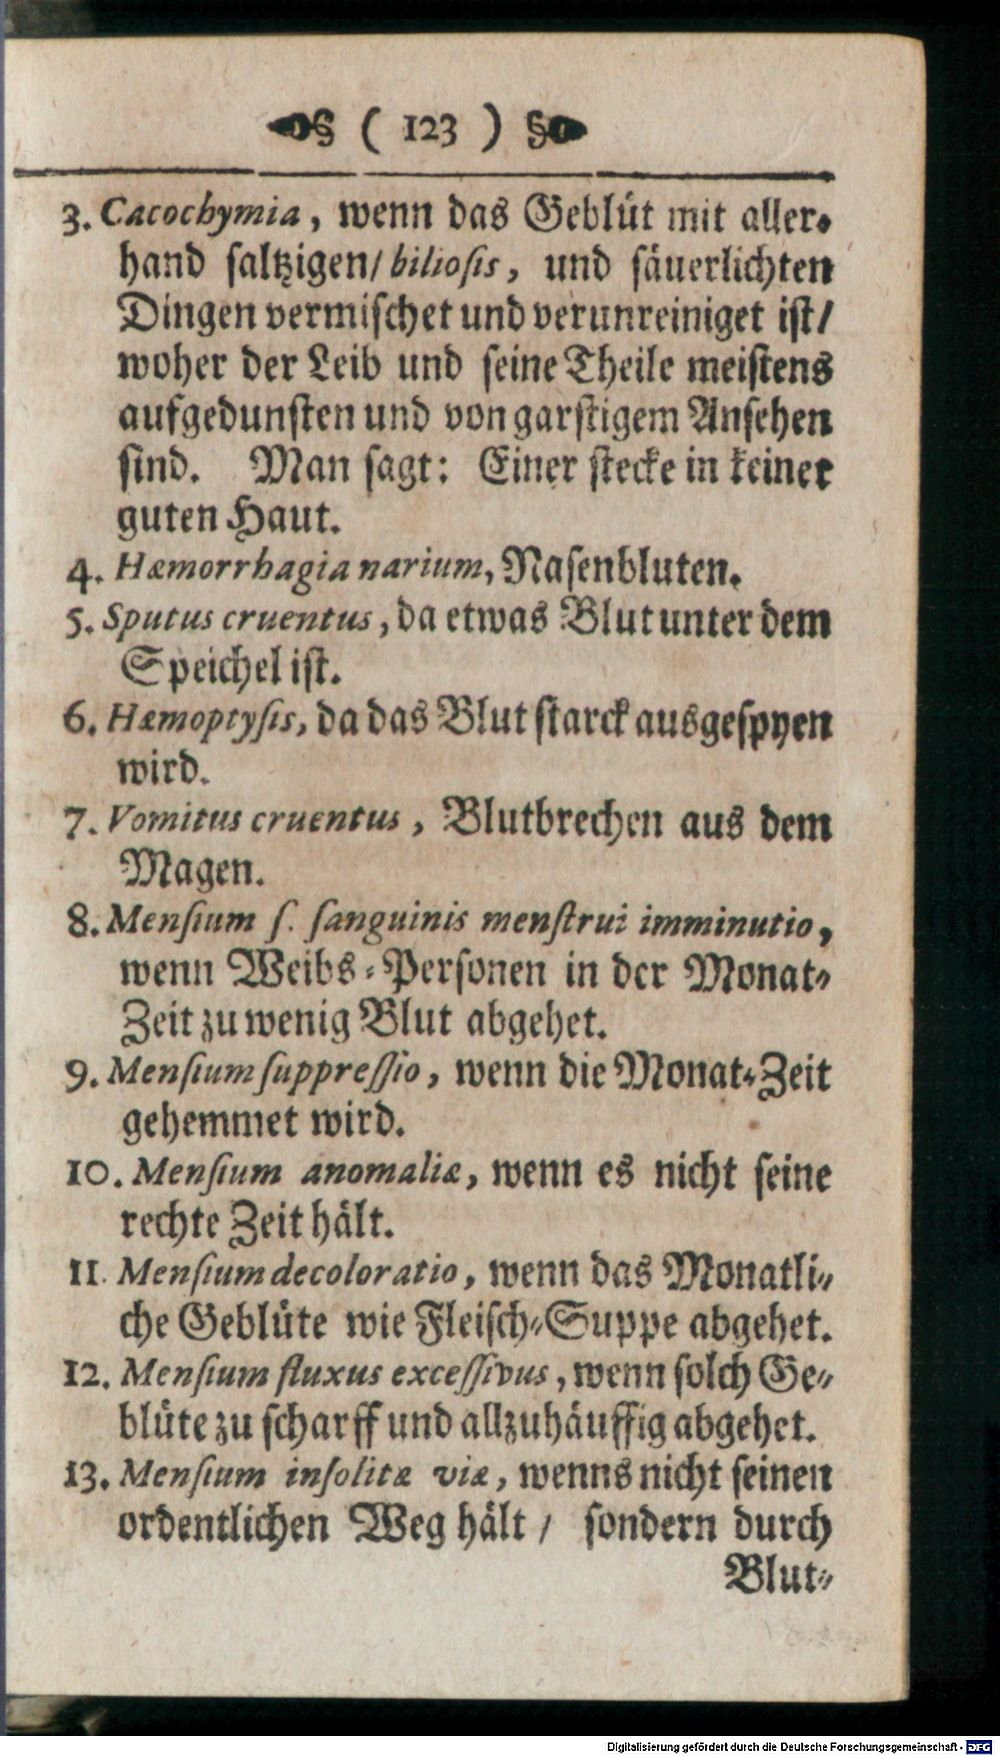 § ( 123 ) §
3. Cacochymia, wenn das Geblüt mit aller-
hand saltzigen/ biliosis, und säuerlichten
Dingen vermischet und verunreiniget ist/
woher der Leib und seine Theile meistens
aufgedunsten und von garstigem Ansehen
sind. Man sagt: Einer stecke in keiner
guten Haut.
4. Hæmorrhagia narium, Nasenbluten.
5. Sputus cruentus, da etwas Blut unter dem
Speichel ist.
6. Hæmoptysis, da das Blut starck ausgespyen
wird.
7. Vomitus cruentus, Blutbrechen aus dem
Magen.
8. Mensium s. sanguinis menstrui imminutio,
wenn Weibs-Personen in der Monat-
Zeit zu wenig Blut abgehet.
9. Mensium suppressio, wenn die Monat-Zeit
gehemmet wird.
10. Mensium anomaliæ, wenn es nicht seine
rechte Zeit hält.
11. Mensium decoloratio, wenn das Monatli-
che Geblüte wie Fleisch-Suppe abgehet.
12. Mensium fluxus excessivus, wenn solch Ge-
blüte zu scharff und allzuhäuffig abgehet.
13. Mensium insolitæ viæ, wenns nicht seinen
ordentlichen Weg hält / sondern durch
Blut-
Digitalisierung gefördert durch die Deutsche Forschungsgemeinschaft - DFG